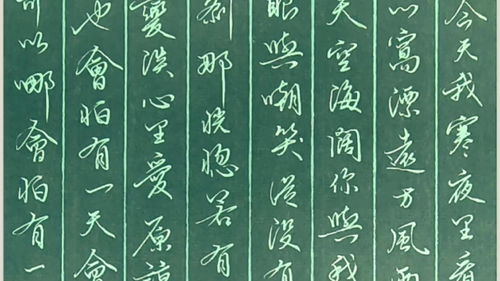 今天我寒夜里看
心窩漂遠方風雨
天空海闊你與我
眼與嘲笑從沒有
刹那恍惚若有
變淡心里愛原諒
也會怕有一天會
可以哪會怕有一